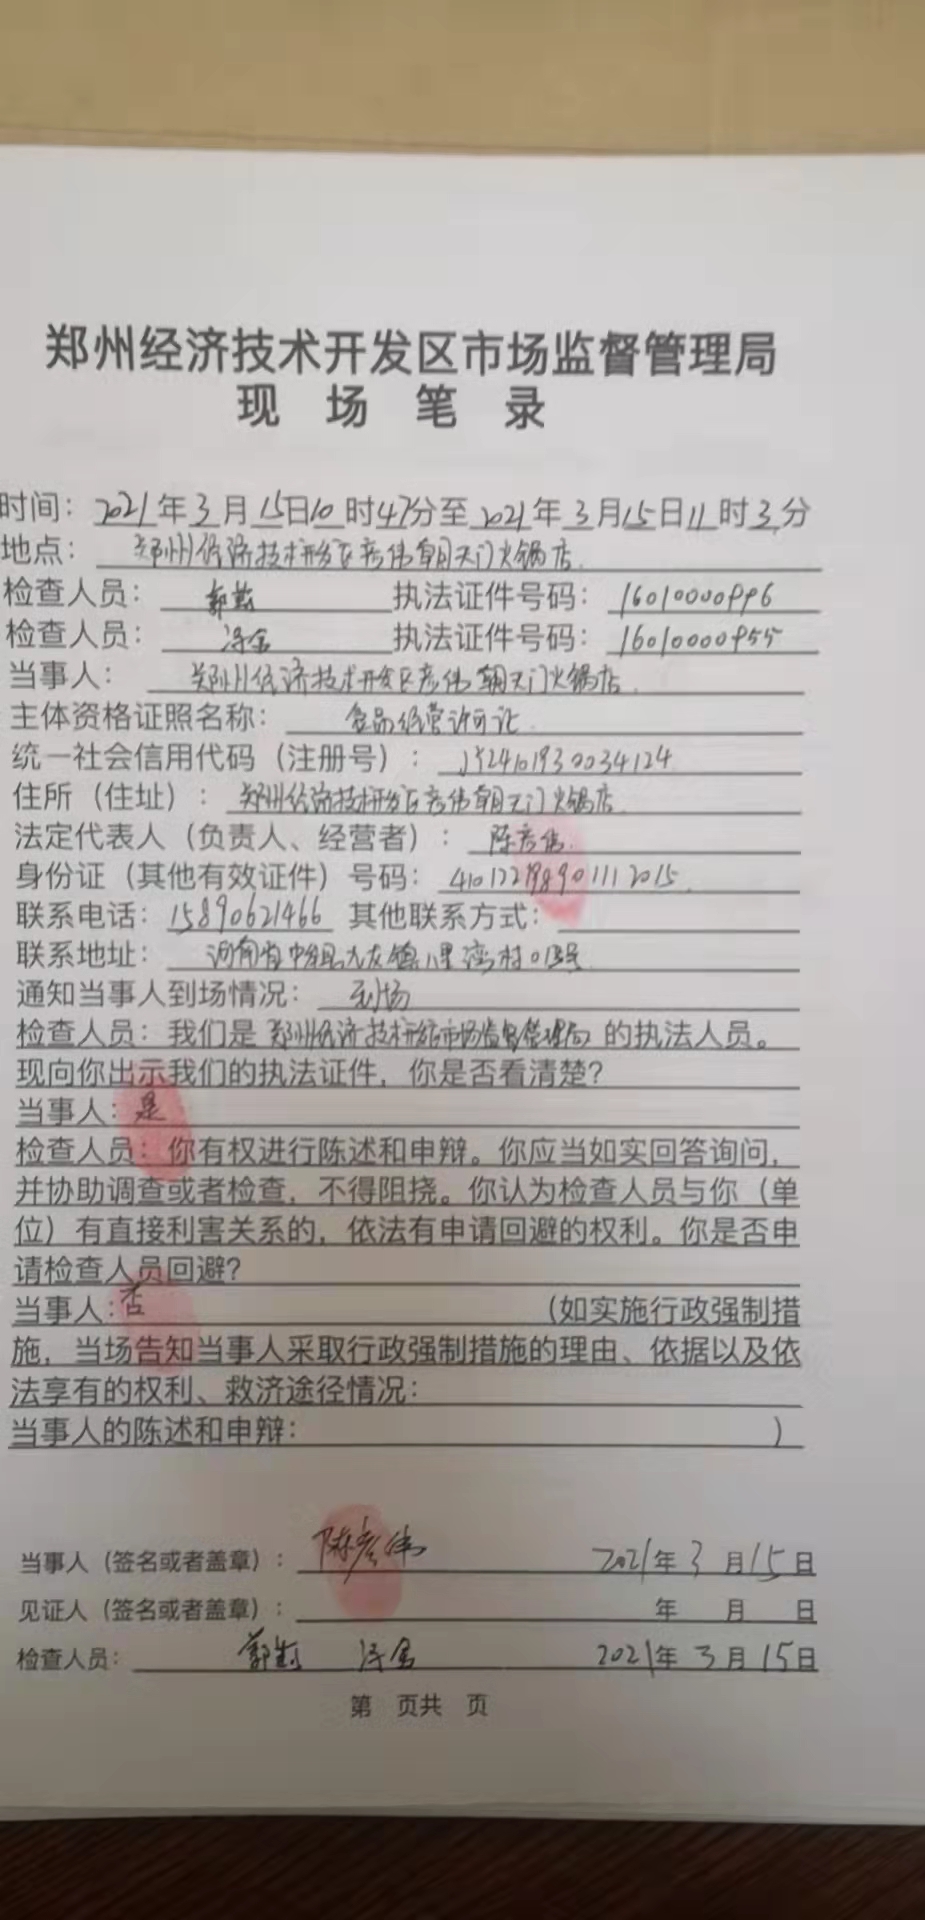 郑州经济技术开发区市场监督管理局
现 场 笔 录
时间：2021年3月15日10时47分至2021年3月15日11时3分
地点：郑州经济技术开发区彦伟朝天门火锅店
检查人员： 执法证件号码：16010000996
检查人员： 执法证件号码：16010000955
当事人：郑州经济技术开发区彦伟朝天门火锅店
主体资格证照名称：食品经营许可证
统一社会信用代码（注册号）：JY24101930034124
住所（住址）：郑州经济技术开发区彦伟朝天门火锅店
法定代表人（负责人、经营者）：陈彦伟
身份证（其他有效证件）号码：410122198901112015
联系电话：15890621466 其他联系方式：
联系地址：河南省中牟县九龙镇八里湾村013号
通知当事人到场情况：到场
检查人员：我们是郑州经济技术开发区市场监督管理局的执法人员。
现向你出示我们的执法证件，你是否看清楚？
当事人：是
检查人员：你有权进行陈述和申辩。你应当如实回答询问，
并协助调查或者检查，不得阻挠。你认为检查人员与你（单
位）有直接利害关系的，依法有申请回避的权利。你是否申
请检查人员回避？
当事人：否 （如实施行政强制措
施，当场告知当事人采取行政强制措施的理由、依据以及依
法享有的权利、救济途径情况：
当事人的陈述和申辩： ）
当事人（签名或者盖章）：陈彦伟 2021年3月15日
见证人（签名或者盖章）： 年 月 日
检查人员： 2021年3月15日
第 页共 页